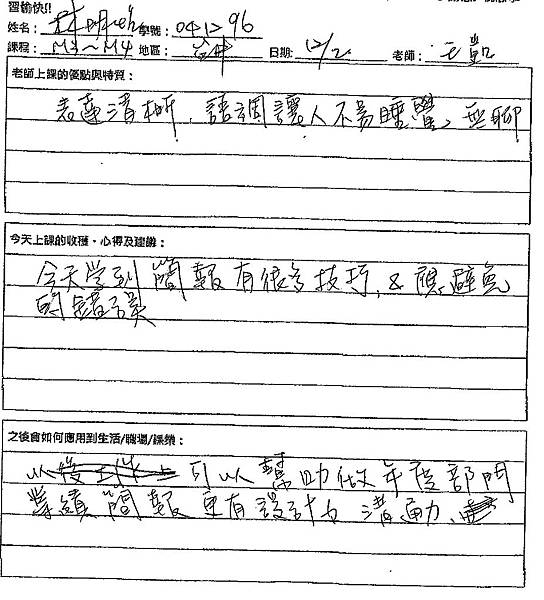 習愉快!!
姓名： 林明 學號： 041296
課程： M3～M4 地區： 台中 日期： 12/2 老師： 王
老師上課的優點與特質：
表達清晰，語調讓人不易睡覺、無聊
今天上課的收穫、心得及建議：
今天学到簡報有很多技巧，& 應避免
的錯誤
之後會如何應用到生活/職場/課業：
以 可以幫助做年度部門
業績簡報更有設計力 溝動